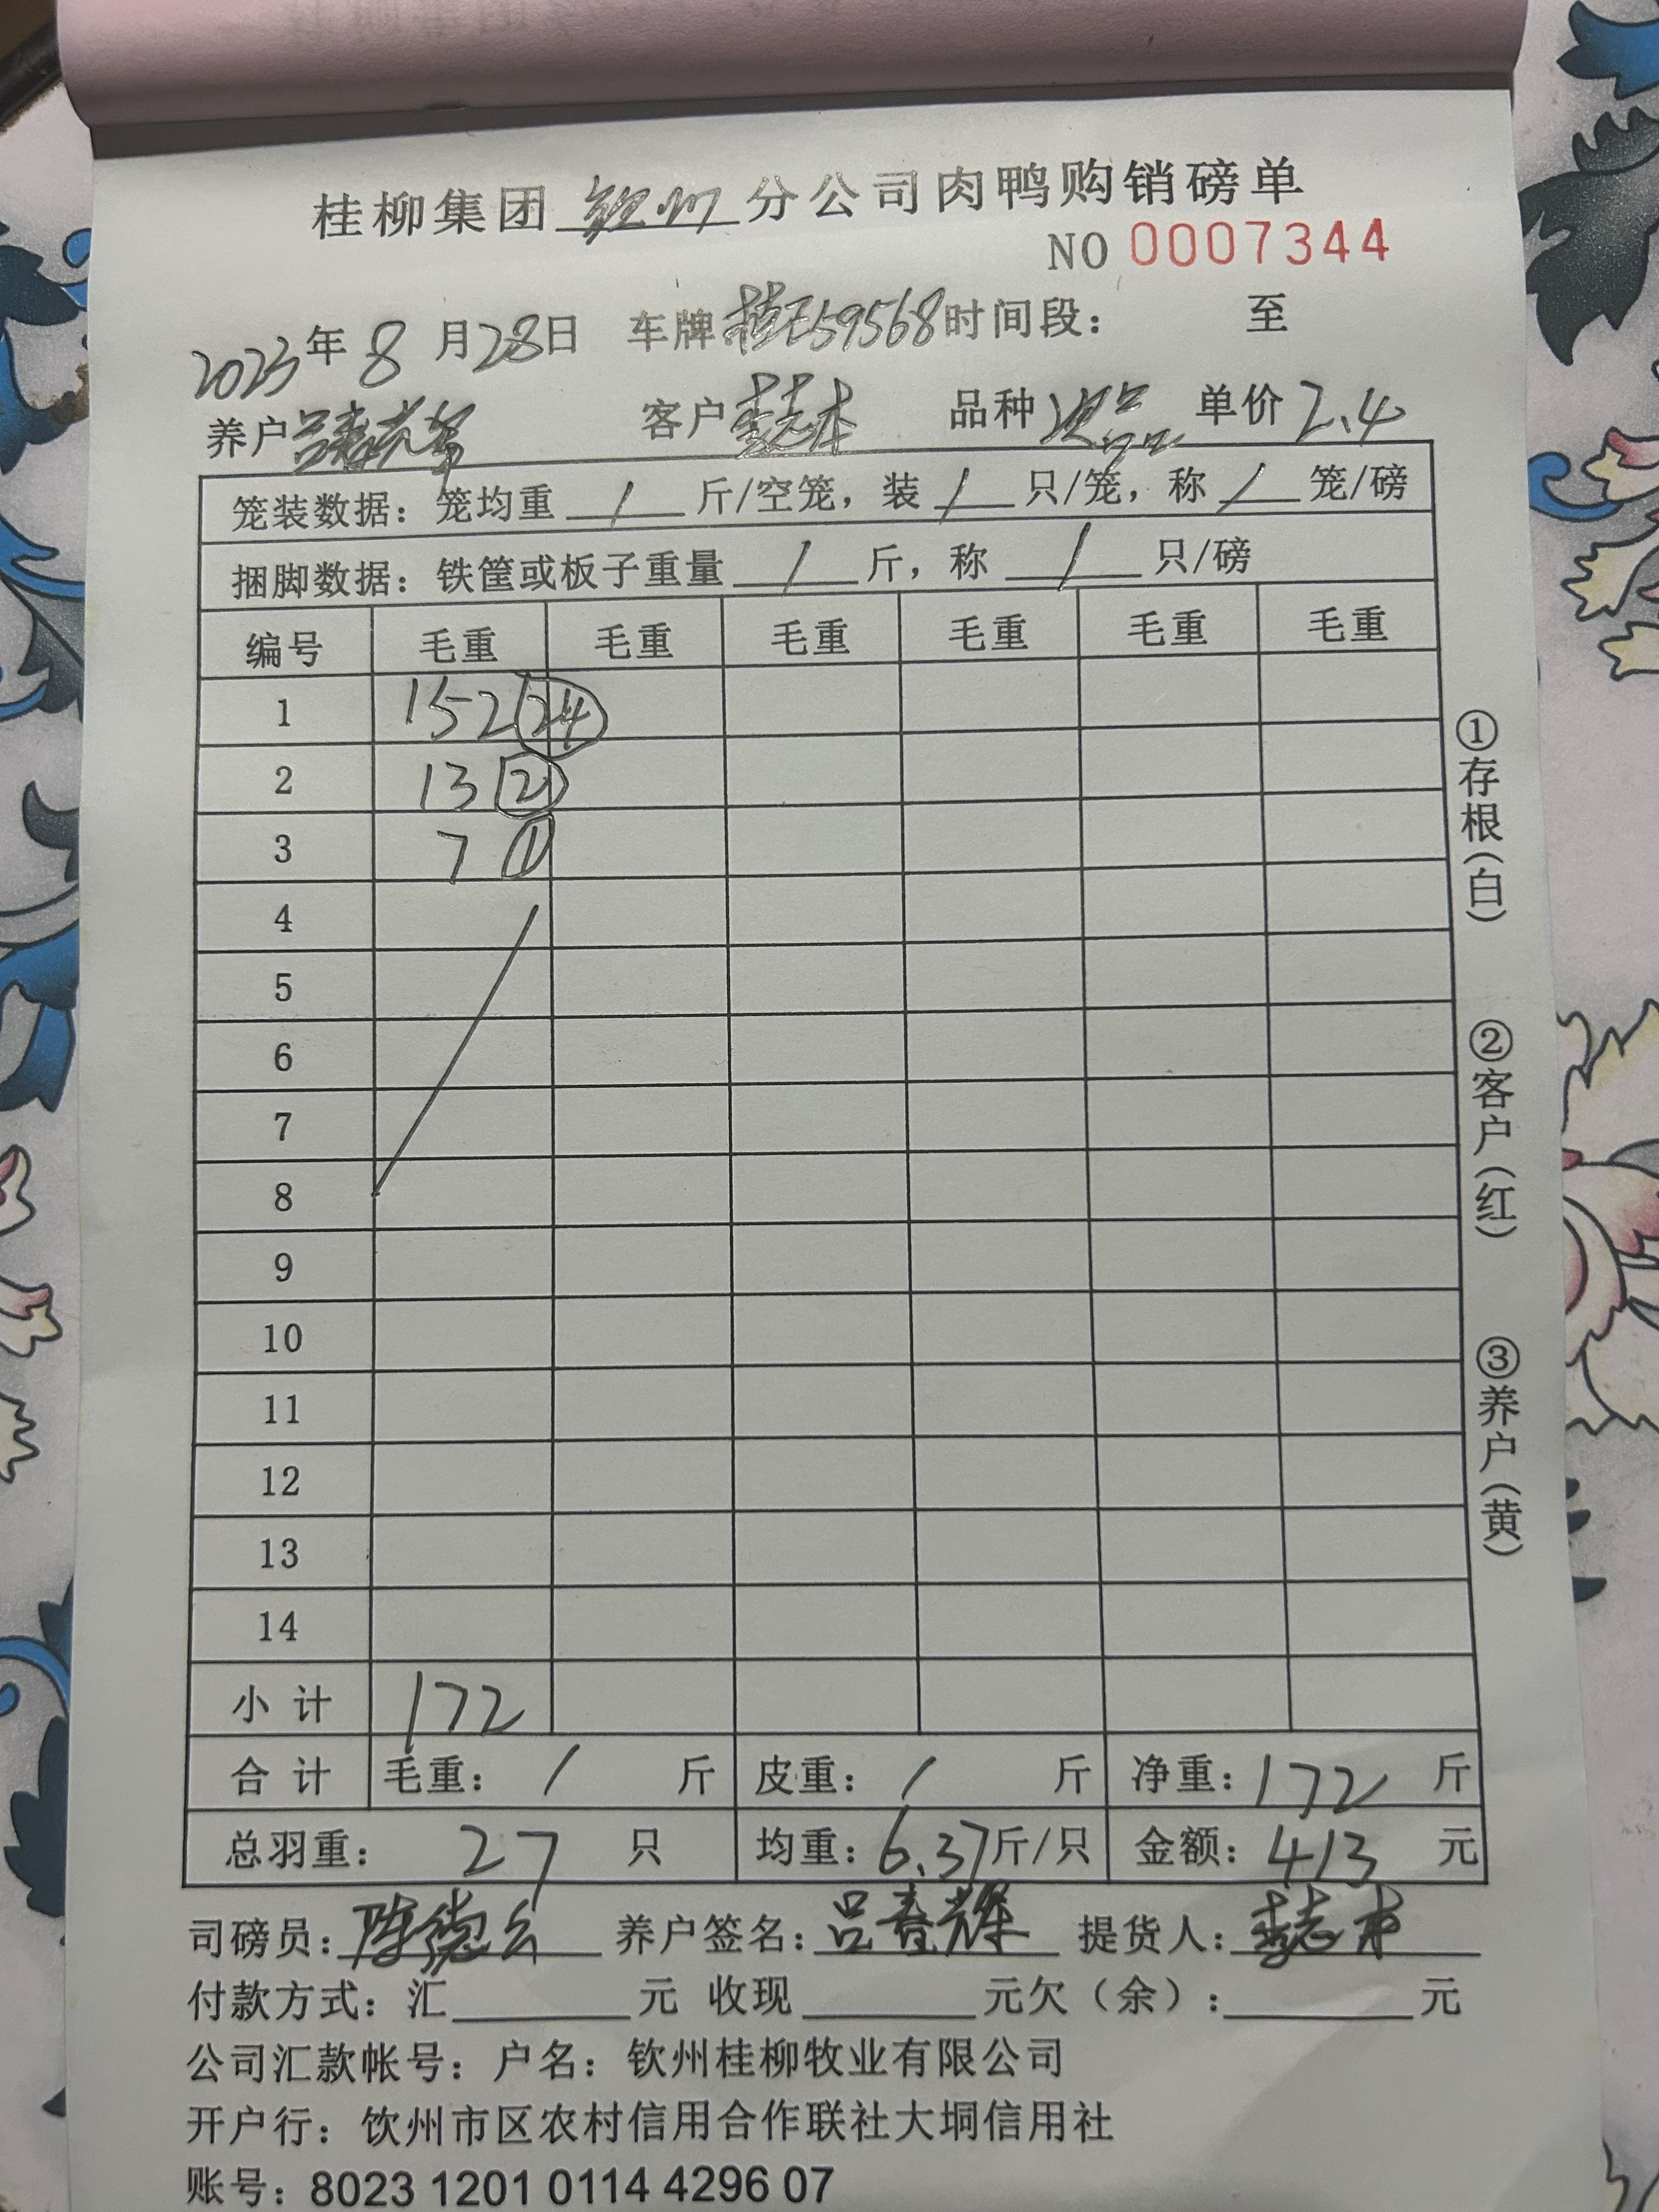 桂柳集团钦州分公司肉鸭购销磅单
NO 0007344
2023年8月28日 车牌:桂E59568时间段： 至
养户吕春光辉 客户李志本 品种次品 单价2.4
笼装数据：笼均重 / 斤/空笼，装 / 只/笼，称 / 笼/磅
捆脚数据：铁筐或板子重量 / 斤，称 / 只/磅
编号 毛重 毛重 毛重 毛重 毛重 毛重
1 152 24
2 13 2
3 7 1
4
5
6
7
8
9
10
11
12
13
14
小计 172
合计 毛重： / 斤 皮重： / 斤 净重：172 斤
总羽重： 27 只 均重：6.37斤/只 金额：413 元
司磅员：陈德云 养户签名：吕春辉 提货人：李志本
付款方式：汇 元 收现 元欠（余）： 元
公司汇款帐号：户名：钦州桂柳牧业有限公司
开户行：饮州市区农村信用合作联社大垌信用社
账号：8023 1201 0114 4296 07
①存根（白）
②客户（红）
③养户（黄）